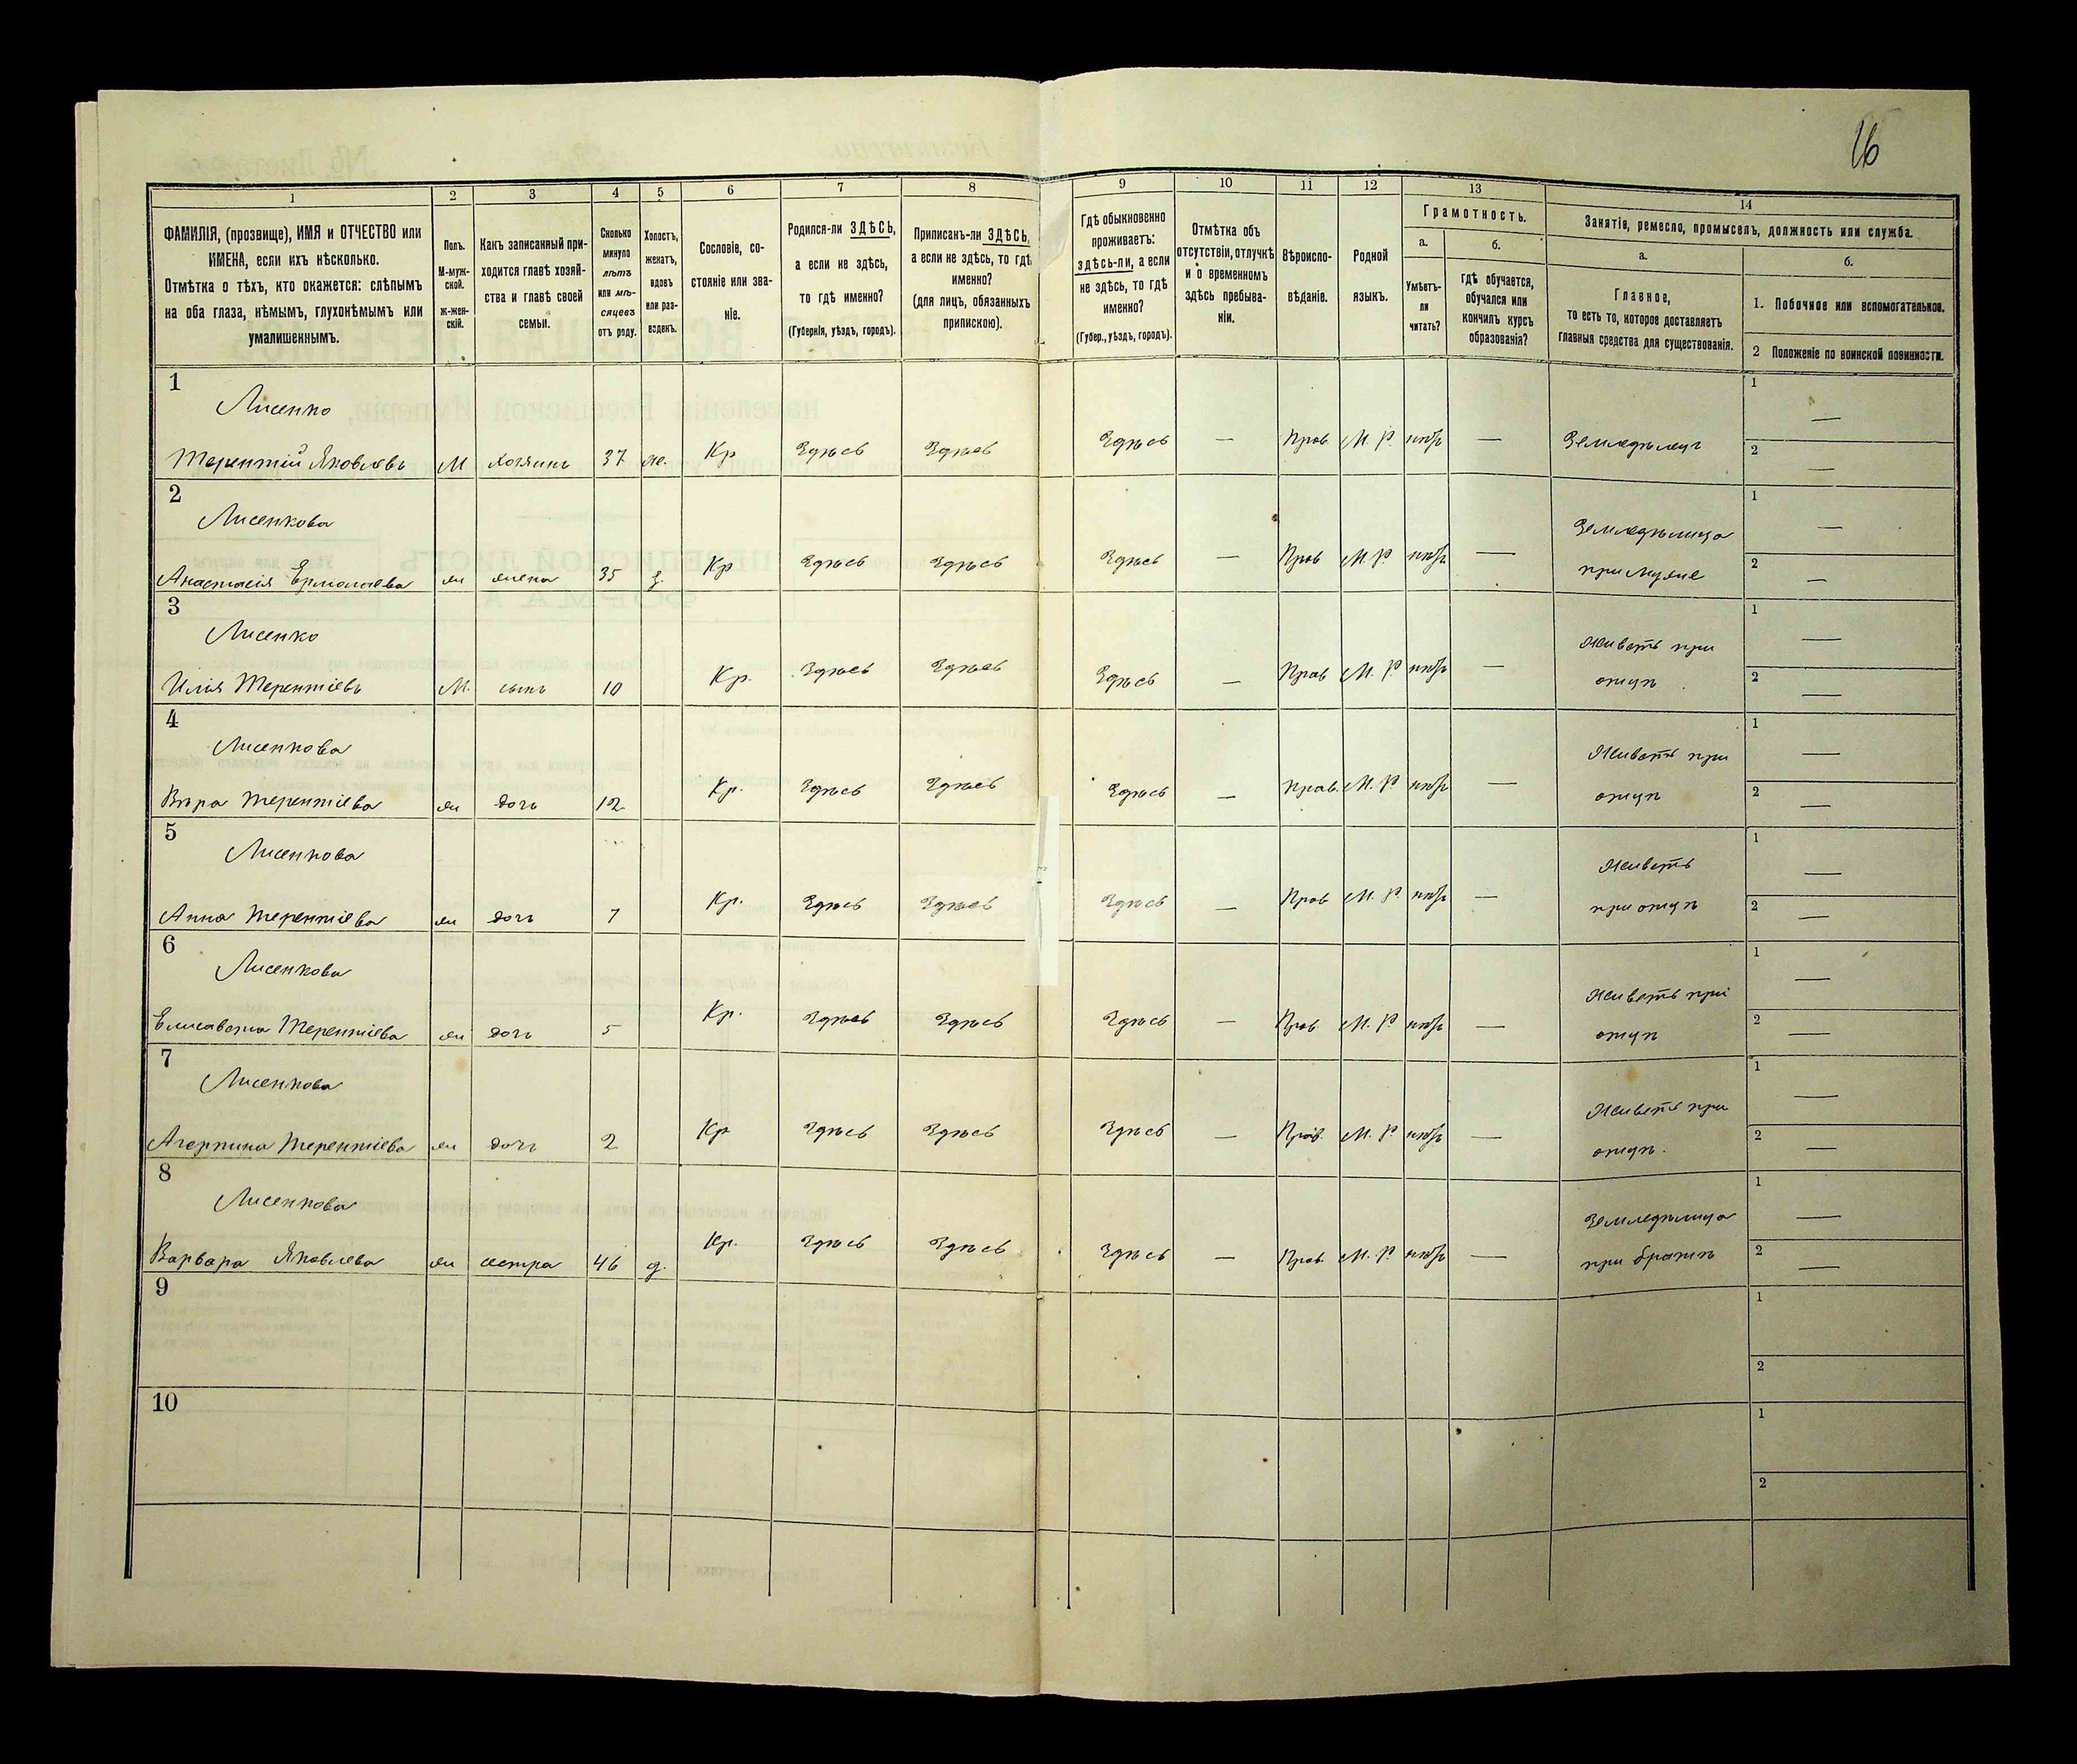 16
1 2 3 4 5 6 7 8 9 10 11 12 13 14
ФАМИЛІЯ, (прозвище), ИМЯ и ОТЧЕСТВО или
ИМЕНА, если ихъ нѣсколько.
Отмѣтка о тѣхъ, кто окажется: слѣпымъ
на оба глаза, нѣмымъ, глухонѣмымъ или
умалишеннымъ.
Полъ.
М-муж-
ской.
Ж-жен-
скій.
Какъ записанный при-
ходится главѣ хозяй-
ства и главѣ своей
семьи.
Сколько
минуло
лѣтъ
или мѣ-
сяцевъ
отъ роду.
Холостъ,
женатъ,
вдовъ
или раз-
веденъ.
Сословіе, со-
стояніе или зва-
ніе.
Родился-ли ЗДѢСЬ,
а если не здѣсь,
то гдѣ именно?
(Губернія, уѣздъ, городъ).
Приписанъ-ли ЗДѢСЬ,
а если не здѣсь, то гдѣ
именно?
(для лицъ, обязанныхъ
припискою).
Гдѣ обыкновенно
проживаетъ:
здѣсь-ли, а если
не здѣсь, то гдѣ
именно?
(Губер., уѣздъ, городъ).
Отмѣтка объ
отсутствіи, отлучкѣ
и о временномъ
здѣсь пребыва-
ніи.
Вѣроиспо-
вѣданіе.
Родной
языкъ.
Грамотность.
а.
Умѣетъ-
ли
читать?
б.
Гдѣ обучается,
обучался или
кончилъ курсъ
образованія?
Занятія, ремесло, промыселъ, должность или служба.
а.
Главное,
то есть то, которое доставляетъ
главныя средства для существованія.
б.
1. Побочное или вспомогательное.
2 Положеніе по воинской повинности.
1
Лисенко
Терентій Яковлевъ М хозяинъ 37 ж. Кр Здѣсь Здѣсь Здѣсь — Прав М. Р. нѣтъ — Земледѣлецъ
1 —
2 —
2
Лисенкова
Анастасія Ермолаева ж жена 35 Кр Здѣсь Здѣсь Здѣсь — Прав М. Р. нѣтъ — Земледѣлица
при мужѣ
1 —
2 —
3
Лисенко
Илія Терентіевъ М. сынъ 10 Кр. Здѣсь Здѣсь Здѣсь — Прав М. Р нѣтъ — Живетъ при
отцѣ
1 —
2 —
4
Лисенкова
Вѣра Терентіева ж дочь 12 Кр. Здѣсь Здѣсь Здѣсь — Прав. М. Р нѣтъ — Живетъ при
отцѣ
1 —
2 —
5
Лисенкова
Анна Терентіева ж дочь 7 Кр. Здѣсь Здѣсь Здѣсь — Прав М. Р. нѣтъ — Живетъ
при отцѣ
1 —
2 —
6
Лисенкова
Елисавета Терентіева ж дочь 5 Кр. Здѣсь Здѣсь Здѣсь — Прав М. Р нѣтъ — Живетъ при
отцѣ
1 —
2 —
7
Лисенкова
Агерпина Терентіева ж дочь 2 Кр Здѣсь Здѣсь Здѣсь — Прав. М. Р нѣтъ — Живетъ при
отцѣ.
1 —
2 —
8
Лисенкова
Варвара Яковлева ж сестра 46 д. Кр. Здѣсь Здѣсь Здѣсь — Прав М. Р нѣтъ — Земледѣлица
при братѣ
1 —
2 —
9
1
2
10
1
2